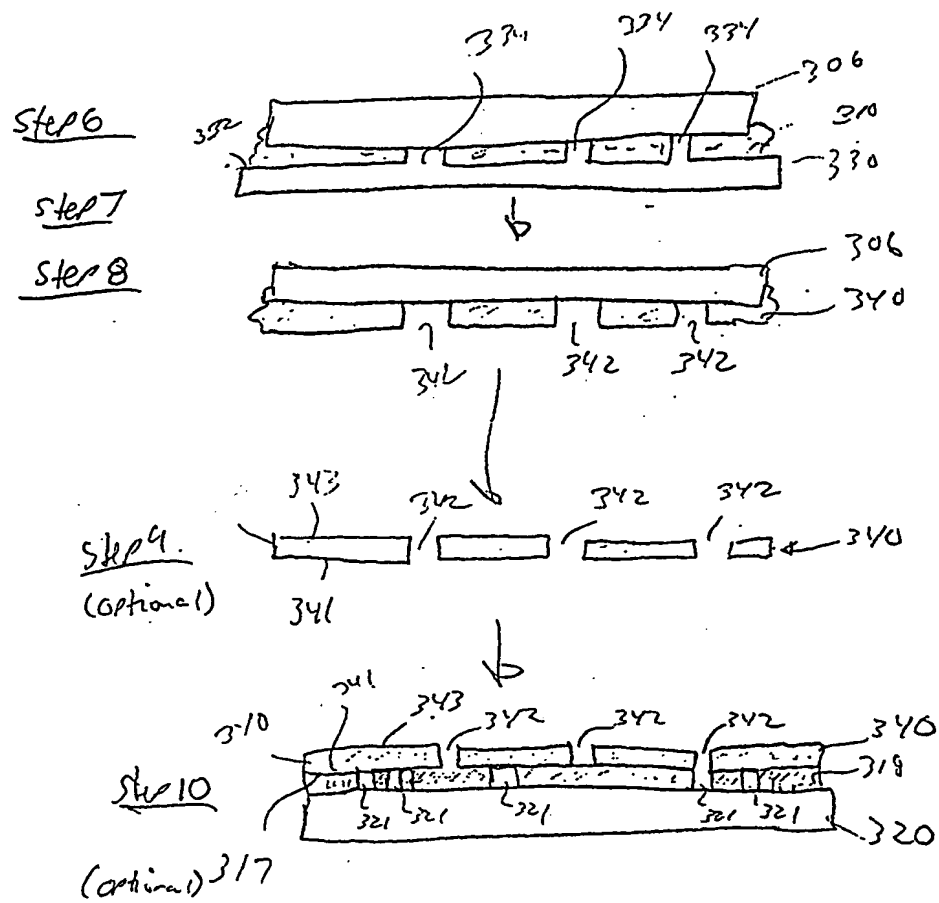 334 334 334
306
Step 6
332
310
330
Step 7
Step 8
306
340
342 342 342
343 342 342 342
Step 9.
(optional)
340
341
341 343 342 342 342
310
340
318
Step 10
321 321 321 321 321
320
(optional) 317